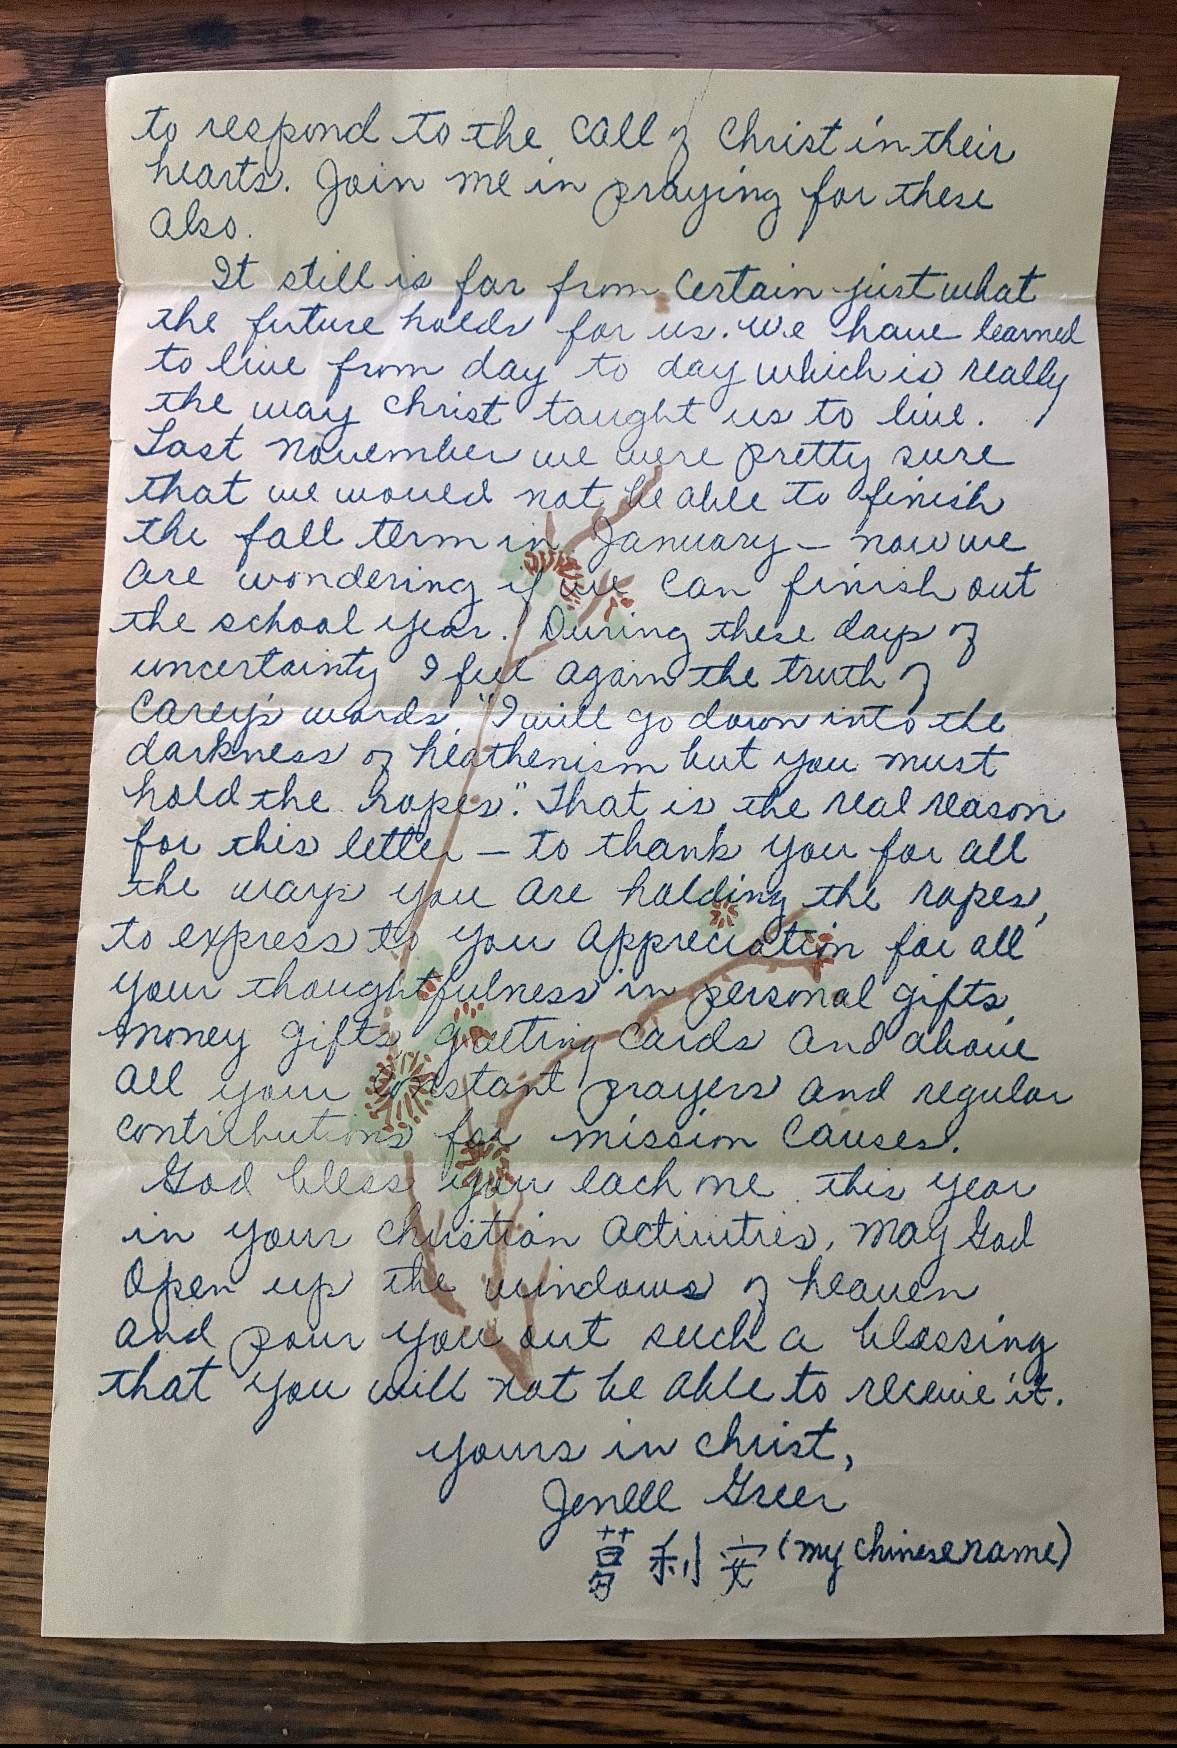 to respond to the call of Christ in their
hearts. Join me in praying for these
also.
It still is far from certain just what
the future holds for us. We have learned
to live from day to day which is really
the way Christ taught us to live.
Last November we were pretty sure
that we would not be able to finish
the fall term in January – now we
are wondering if we can finish out
the school year. During these days of
uncertainty I feel again the truth of
Carey's words, "I will go down into the
darkness of heathenism but you must
hold the ropes." That is the real reason
for this letter – to thank you for all
the ways you are holding the ropes,
to express to you appreciation for all
your thoughtfulness in personal gifts,
money gifts, greeting cards and above
all your constant prayers and regular
contributions for mission causes.
God bless you each one this year
in your Christian activities. May God
open up the windows of heaven
and pour you out such a blessing
that you will not be able to receive it.
Yours in Christ,
Jenell Greer
葛利安 (my Chinese name)